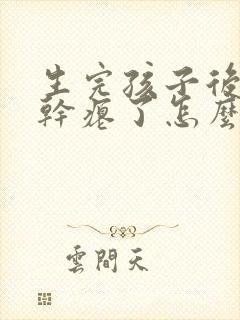 生完孩子後
幹瘪了怎麼
雲間天